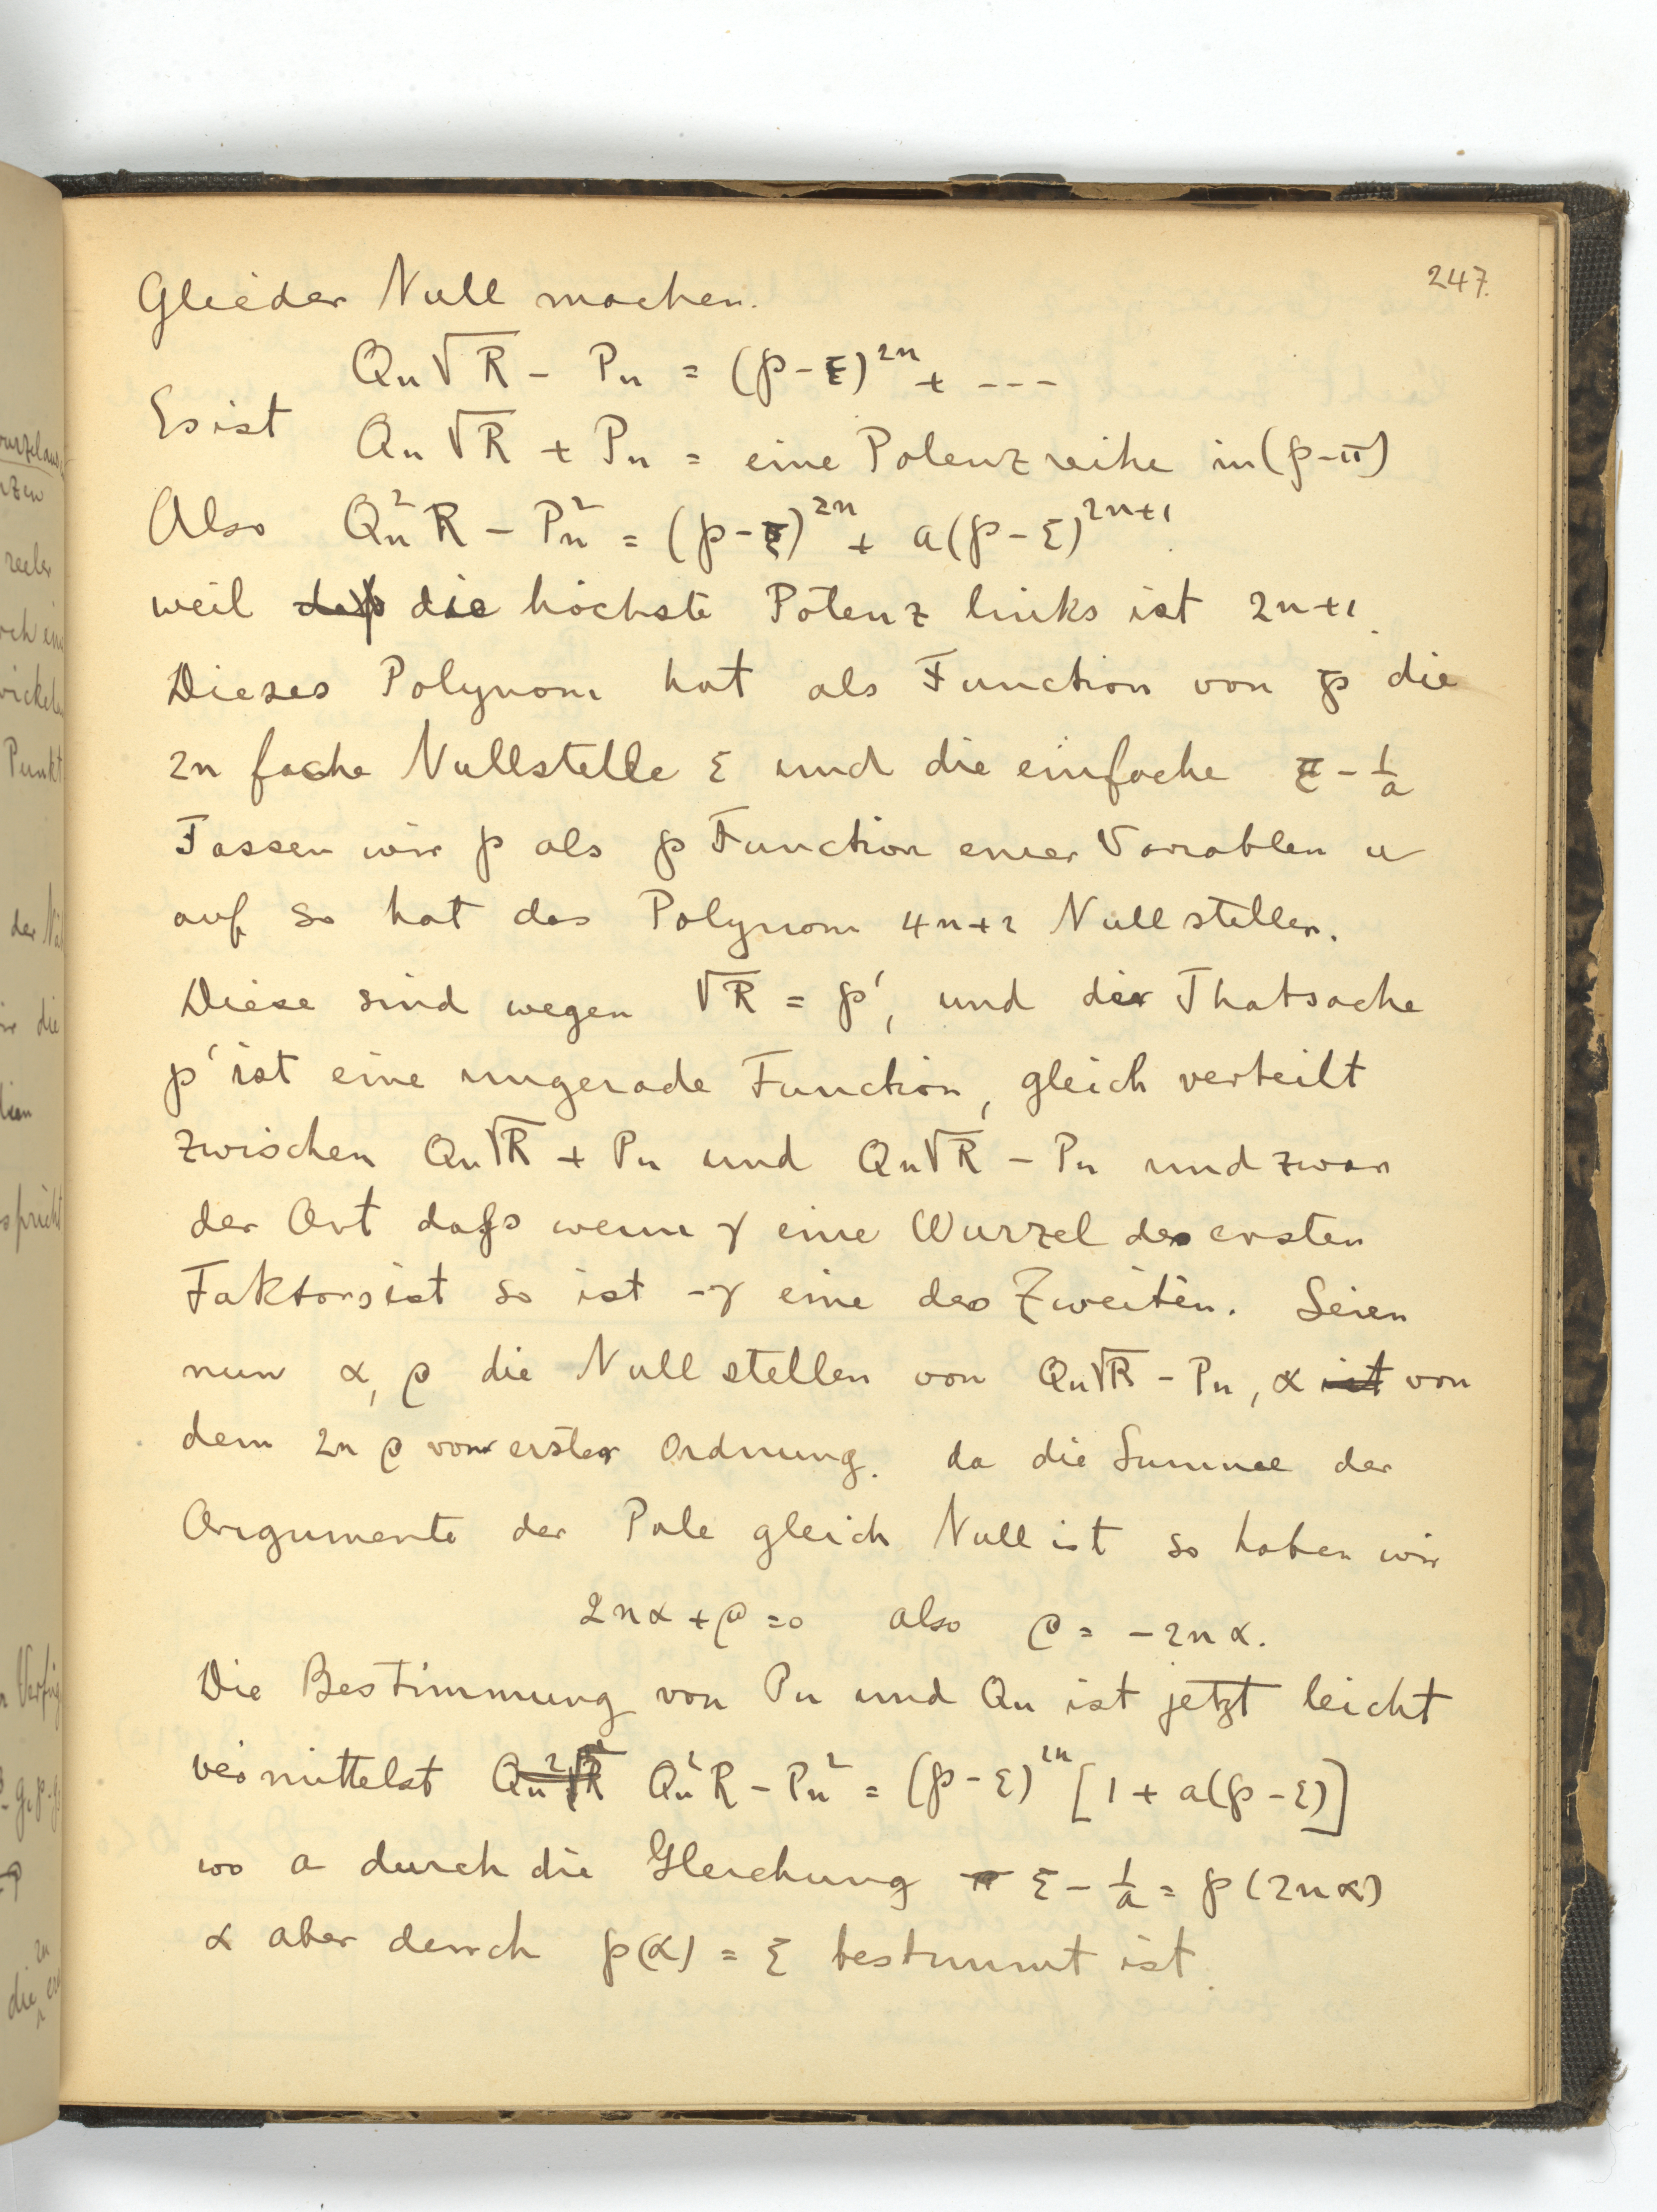 247.
Glieder Null machen.
Qn√R - Pn = (℘-ξ)^2n + ---
Es ist Qn√R + Pn = eine Potenzreihe in (℘-π)
Also Qn²R - Pn² = (℘-ξ)^2n + a(℘-ξ)^2n+1.
weil daß die höchste Potenz links ist 2n+1.
Dieses Polynom hat als Function von ℘ die
2n fache Nullstelle ξ und die einfache ξ - 1/a
Fassen wir ℘ als ℘ Function einer Variablen u
auf so hat das Polynom 4n+2 Nullstellen.
Diese sind wegen √R = ℘', und der Thatsache
℘' ist eine ungerade Function, gleich verteilt
zwischen Qn√R + Pn und Qn√R - Pn und zwar
der Art daß wenn γ eine Wurzel des ersten
Faktors ist so ist -γ eine des Zweiten. Seien
nun α, β die Nullstellen von Qn√R - Pn, α ist von
dem 2n β von erster Ordnung. da die Summe der
Argumente der Pole gleich Null ist so haben wir
2nα + β = 0 also β = -2nα.
Die Bestimmung von Pn und Qn ist jetzt leicht
vermittelst Qn²√R Qn²R - Pn² = (℘-ξ)^2n [1 + a(℘-ξ)]
wo a durch die Gleichung π ξ - 1/a = ℘(2nα)
α aber durch ℘(α) = ξ bestimmt ist.